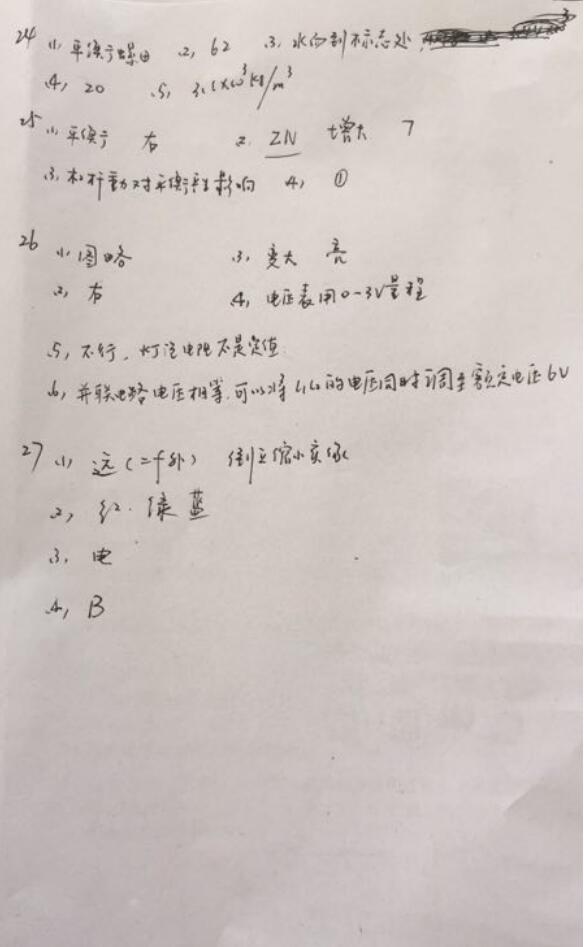 24 (1) 平衡螺母 (2) 62 (3) 水面到标志处
(4) 20 (5) 3.1×10³kg/m³
25 (1) 平衡 右 (2) ZN 增大 7
(3) 杠杆重对平衡的影响 (4) ①
26 (1) 图略 (3) 变大 亮
(2) 右 (4) 电压表用0-3V量程
(5) 不行,灯泡电阻不是定值
(6) 并联电路电压相等,可以将L1L2的电压同时调至额定电压6V
27 (1) 远(二f外) 倒立缩小实像
(2) 红·绿蓝
(3) 电
(4) B